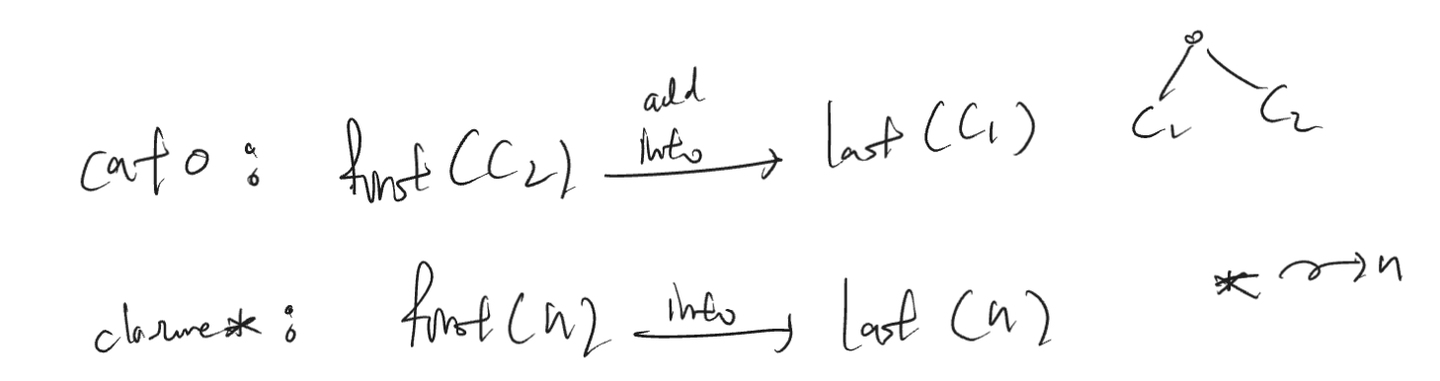 cat o : first(C2) add into → last(C1)
o
C1 C2
closure * : first(n) into → last(n)
* → n